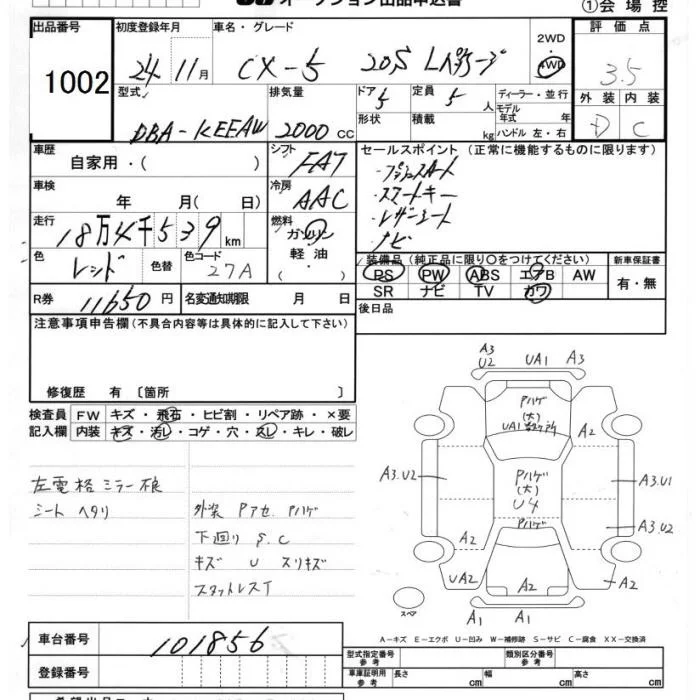 オークション出品申込書
①会場控
出品番号 初度登録年月 車名・グレード 2WD 評価点
1002 24 11月 CX-5 20S Lパッケージ 4WD 3.5
型式 排気量 ドア 定員 ディーラー・並行 外装 内装
DBA-KEEAW 2000 CC 5 5 人 モデル年式 年 D C
形状 積載 kg ハンドル 左・右
車歴 シフト セールスポイント (正常に機能するものに限ります)
自家用・( ) FAT ・プッシュスタート
車検 冷房 ・スマートキー
年 月( 日) AAC ・レザーシート
走行 燃料 ・ナビ
18万4千539 km ガソリン
色 色替 色コード 軽油 装備品 (純正品に限り○をつけてください) 新車保証書
レッド 27A ・( ) PS PW ABS エアB AW 有・無
R券 11650円 名変通知期限 月 日 SR ナビ TV カワ
注意事項申告欄 (不具合内容等は具体的に記入して下さい) 後日品
修復歴 有 〔箇所 〕
検査員 FW キズ・飛石・ヒビ割・リペア跡・×要
記入欄 内装 キズ・汚レ・コゲ・穴・スレ・キレ・破レ
左電格ミラー痕
シート ヘタリ 外装 Pアセ Pハゲ
下回り S.C
キズ U スリキズ
スタットレスT
A3 U2 UA1 A3
Pハゲ (大)
UA1
A2
A3.U2 Pハゲ (大) U4 A3.U1
Pハゲ A3.U2
A2
UA2 A2 A2
スペア A1 A1
A－キズ E－エクボ U－凹み W－補修跡 S－サビ C－腐食 XX－交換済
車台番号 101856
型式指定番号 参考 類別区分番号 参考
登録番号 車庫証明用 参考 長さ cm 幅 cm 高さ cm